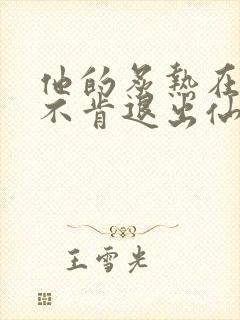 他的炙热在
不肯退出仙
王雪光